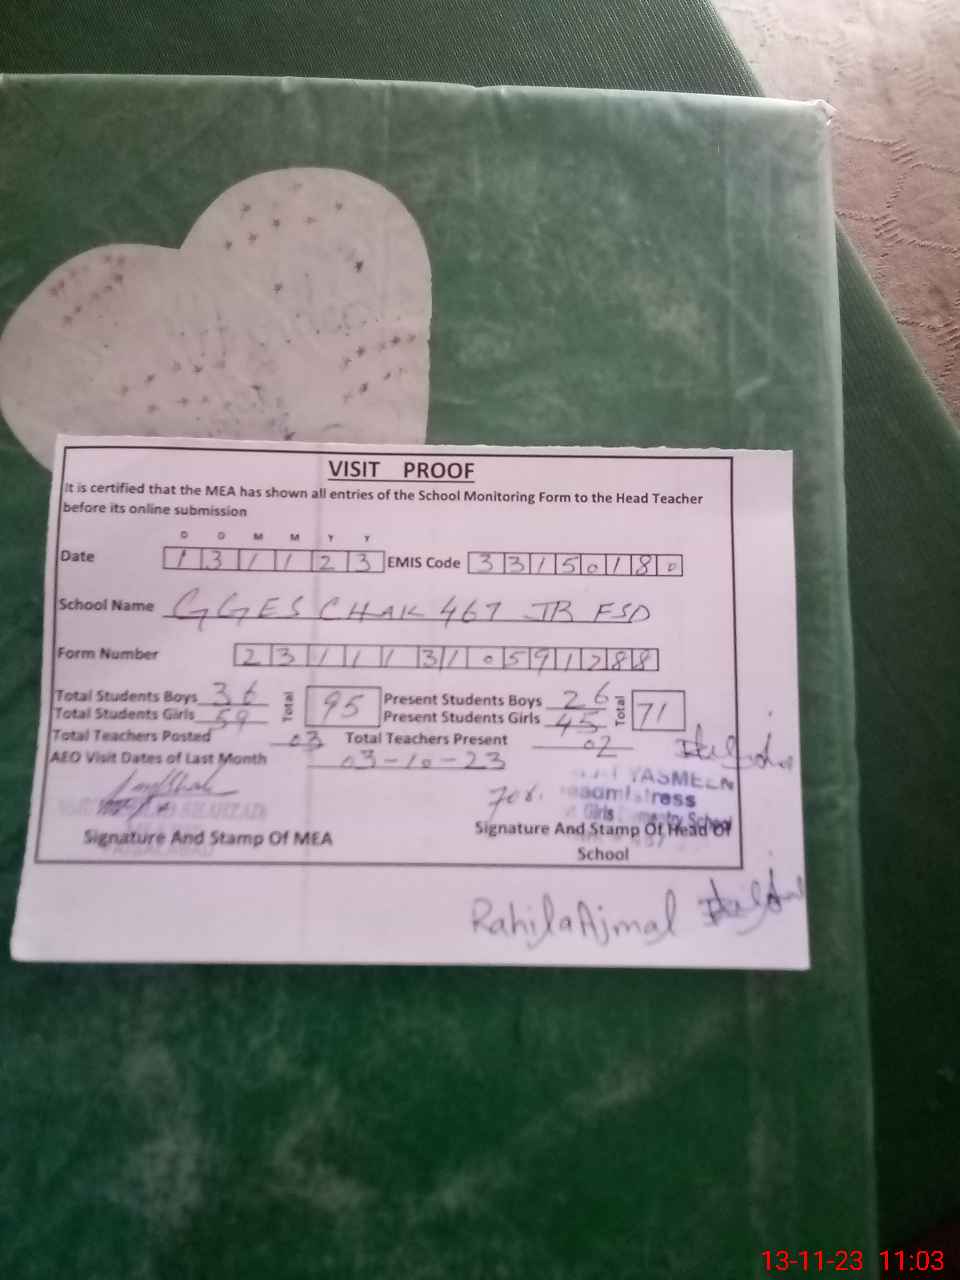 VISIT PROOF
It is certified that the MEA has shown all entries of the School Monitoring Form to the Head Teacher
before its online submission
D D M M Y Y
Date 1 3 1 1 2 3 EMIS Code 3 3 1 5 0 1 8 0
School Name GGES CHAK 467 JB FSD
Form Number 2 3 1 1 1 3 1 0 5 9 1 2 8 8
Total Students Boys 36 Total 95 Present Students Boys 26 Total 71
Total Students Girls 59 Present Students Girls 45
Total Teachers Posted 03 Total Teachers Present 02
AEO Visit Dates of Last Month 03-10-23
YASMEEN
for.
Girls School
Signature And Stamp Of MEA Signature And Stamp Of Head Of
School
Rahila Ajmal
13-11-23 11:03